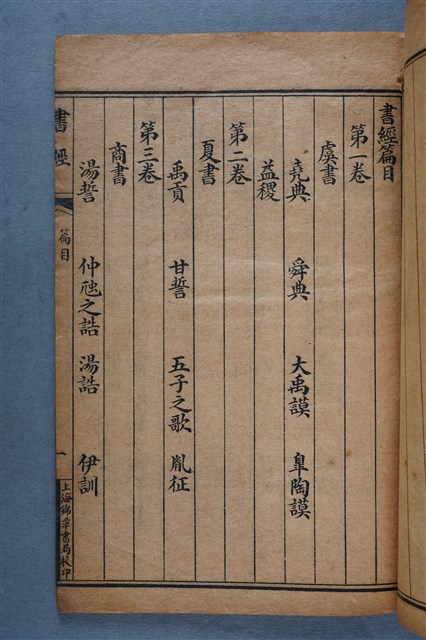 書經篇目
第一卷
虞書
堯典 舜典 大禹謨 皐陶謨
益稷
第二卷
夏書
禹貢 甘誓 五子之歌 胤征
第三卷
商書
湯誓 仲虺之誥 湯誥 伊訓
書經 篇目 一 上海錦章書局校印